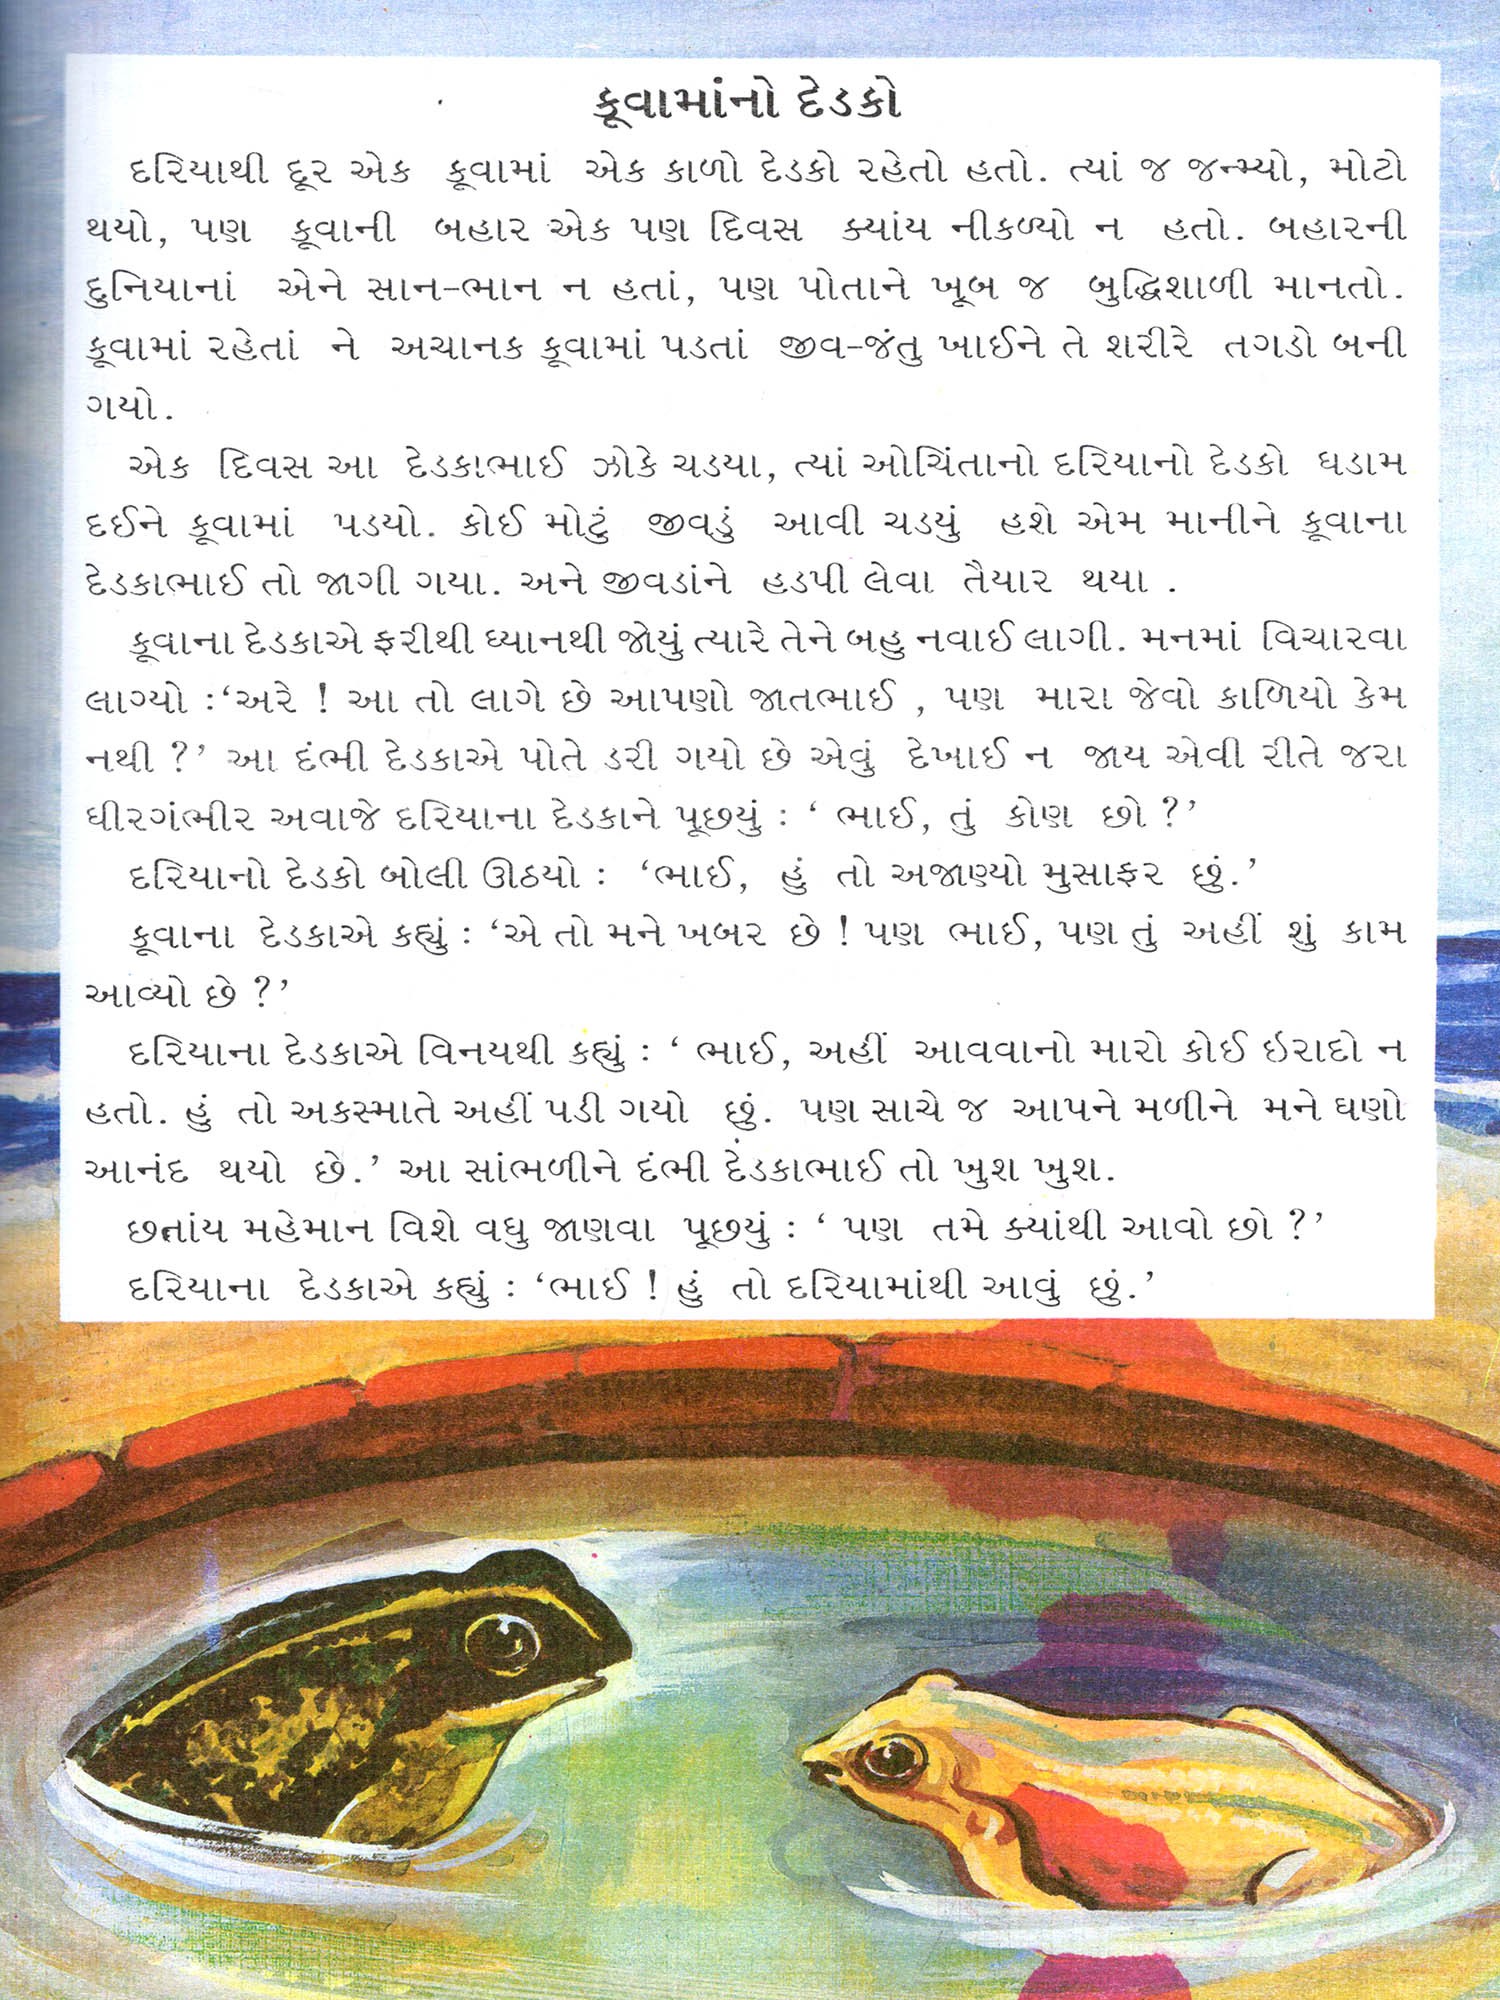 કૂવામાંનો દેડકો
દરિયાથી દૂર એક કૂવામાં એક કાળો દેડકો રહેતો હતો. ત્યાં જ જન્મ્યો, મોટો
થયો, પણ કૂવાની બહાર એક પણ દિવસ ક્યાંય નીકળ્યો ન હતો. બહારની
દુનિયાનાં એને સાન-ભાન ન હતાં, પણ પોતાને ખૂબ જ બુદ્ધિશાળી માનતો.
કૂવામાં રહેતાં ને અચાનક કૂવામાં પડતાં જીવ-જંતુ ખાઈને તે શરીરે તગડો બની
ગયો.
એક દિવસ આ દેડકાભાઈ ઝોકે ચડયા, ત્યાં ઓચિંતાનો દરિયાનો દેડકો ધડામ
દઈને કૂવામાં પડયો. કોઈ મોટું જીવડું આવી ચડયું હશે એમ માનીને કૂવાના
દેડકાભાઈ તો જાગી ગયા. અને જીવડાંને હડપી લેવા તૈયાર થયા .
કૂવાના દેડકાએ ફરીથી ધ્યાનથી જોયું ત્યારે તેને બહુ નવાઈ લાગી. મનમાં વિચારવા
લાગ્યો :‘અરે ! આ તો લાગે છે આપણો જાતભાઈ , પણ મારા જેવો કાળિયો કેમ
નથી ?’ આ દંભી દેડકાએ પોતે ડરી ગયો છે એવું દેખાઈ ન જાય એવી રીતે જરા
ધીરગંભીર અવાજે દરિયાના દેડકાને પૂછયું : ‘ ભાઈ, તું કોણ છો ?’
દરિયાનો દેડકો બોલી ઊઠયો : ‘ભાઈ, હું તો અજાણ્યો મુસાફર છું.’
કૂવાના દેડકાએ કહ્યું : ‘એ તો મને ખબર છે ! પણ ભાઈ, પણ તું અહીં શું કામ
આવ્યો છે ?’
દરિયાના દેડકાએ વિનયથી કહ્યું : ‘ ભાઈ, અહીં આવવાનો મારો કોઈ ઇરાદો ન
હતો. હું તો અકસ્માતે અહીં પડી ગયો છું. પણ સાચે જ આપને મળીને મને ઘણો
આનંદ થયો છે.’ આ સાંભળીને દંભી દેડકાભાઈ તો ખુશ ખુશ.
છતાંય મહેમાન વિશે વધુ જાણવા પૂછયું : ‘ પણ તમે ક્યાંથી આવો છો ?’
દરિયાના દેડકાએ કહ્યું : ‘ભાઈ ! હું તો દરિયામાંથી આવું છું.’